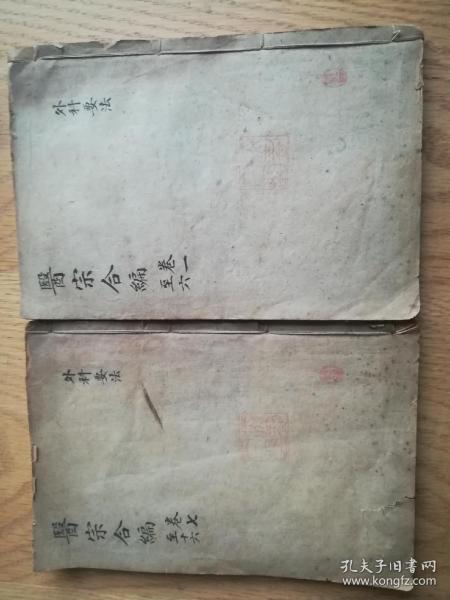 外科要法
醫宗合編
卷一
至六
外科要法
醫宗合編
卷七
至十六
孔夫子旧书网
www.kongfz.com